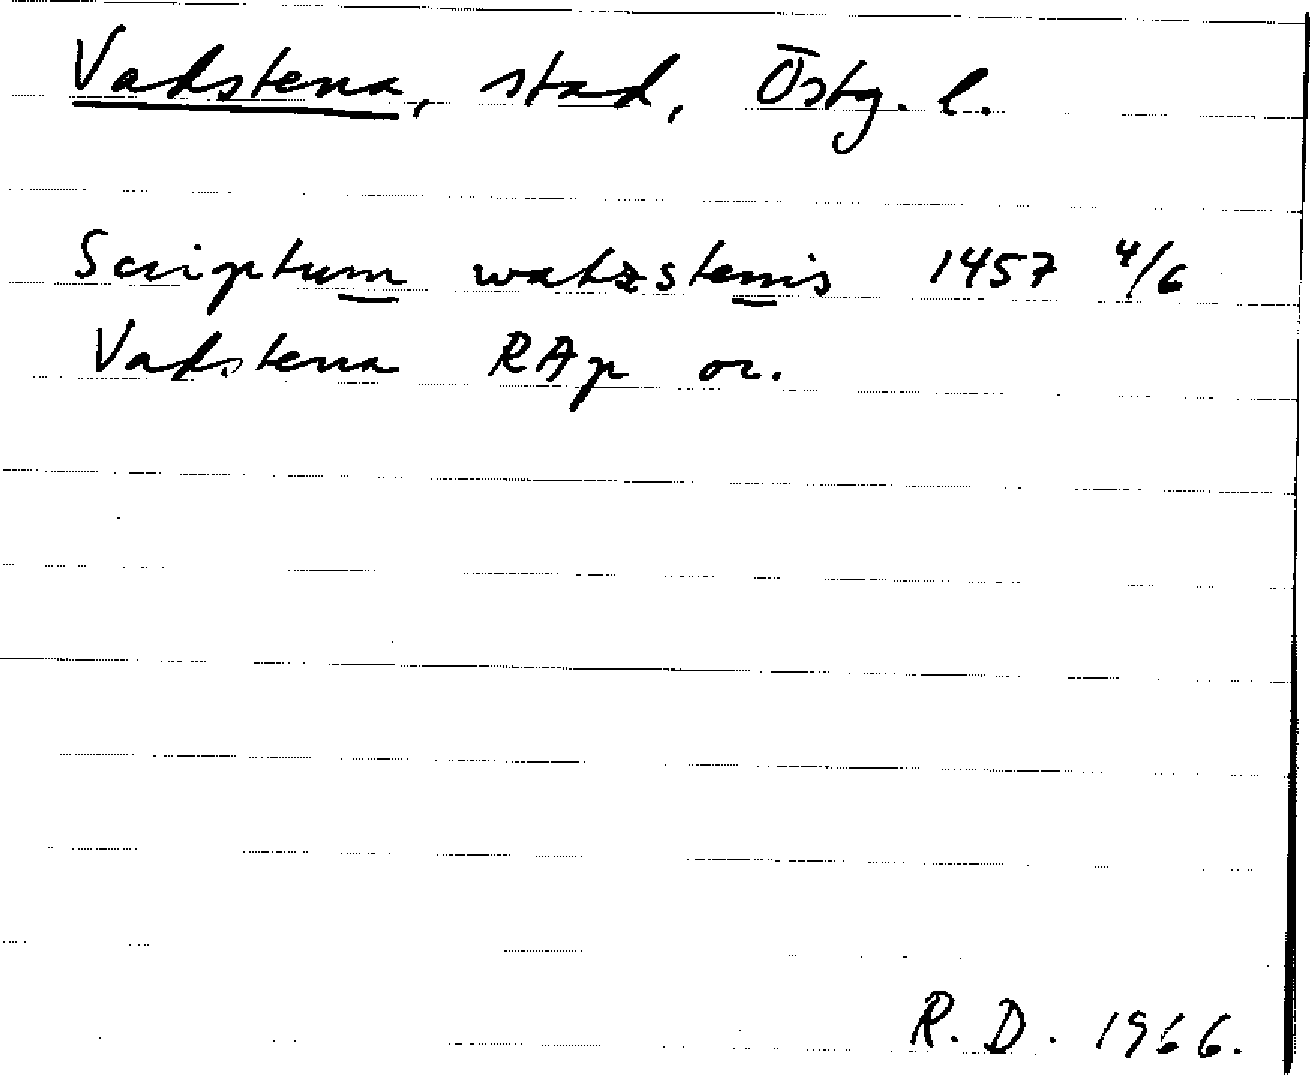 Vadstena, stad, Östg. l.
Scriptum watzstenis 1457 4/6
Vadstena RAp or.
R. D. 1966.